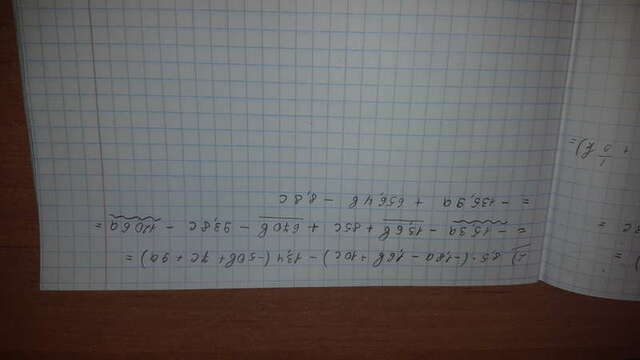 2) 8,5·(-1,8a - 1,6b + 10c) - 13,4·(-50b + 7c + 9a) =
= -15,3a - 13,6b + 85c + 670b - 93,8c - 120,6a =
= -135,9a + 656,4b - 8,8c